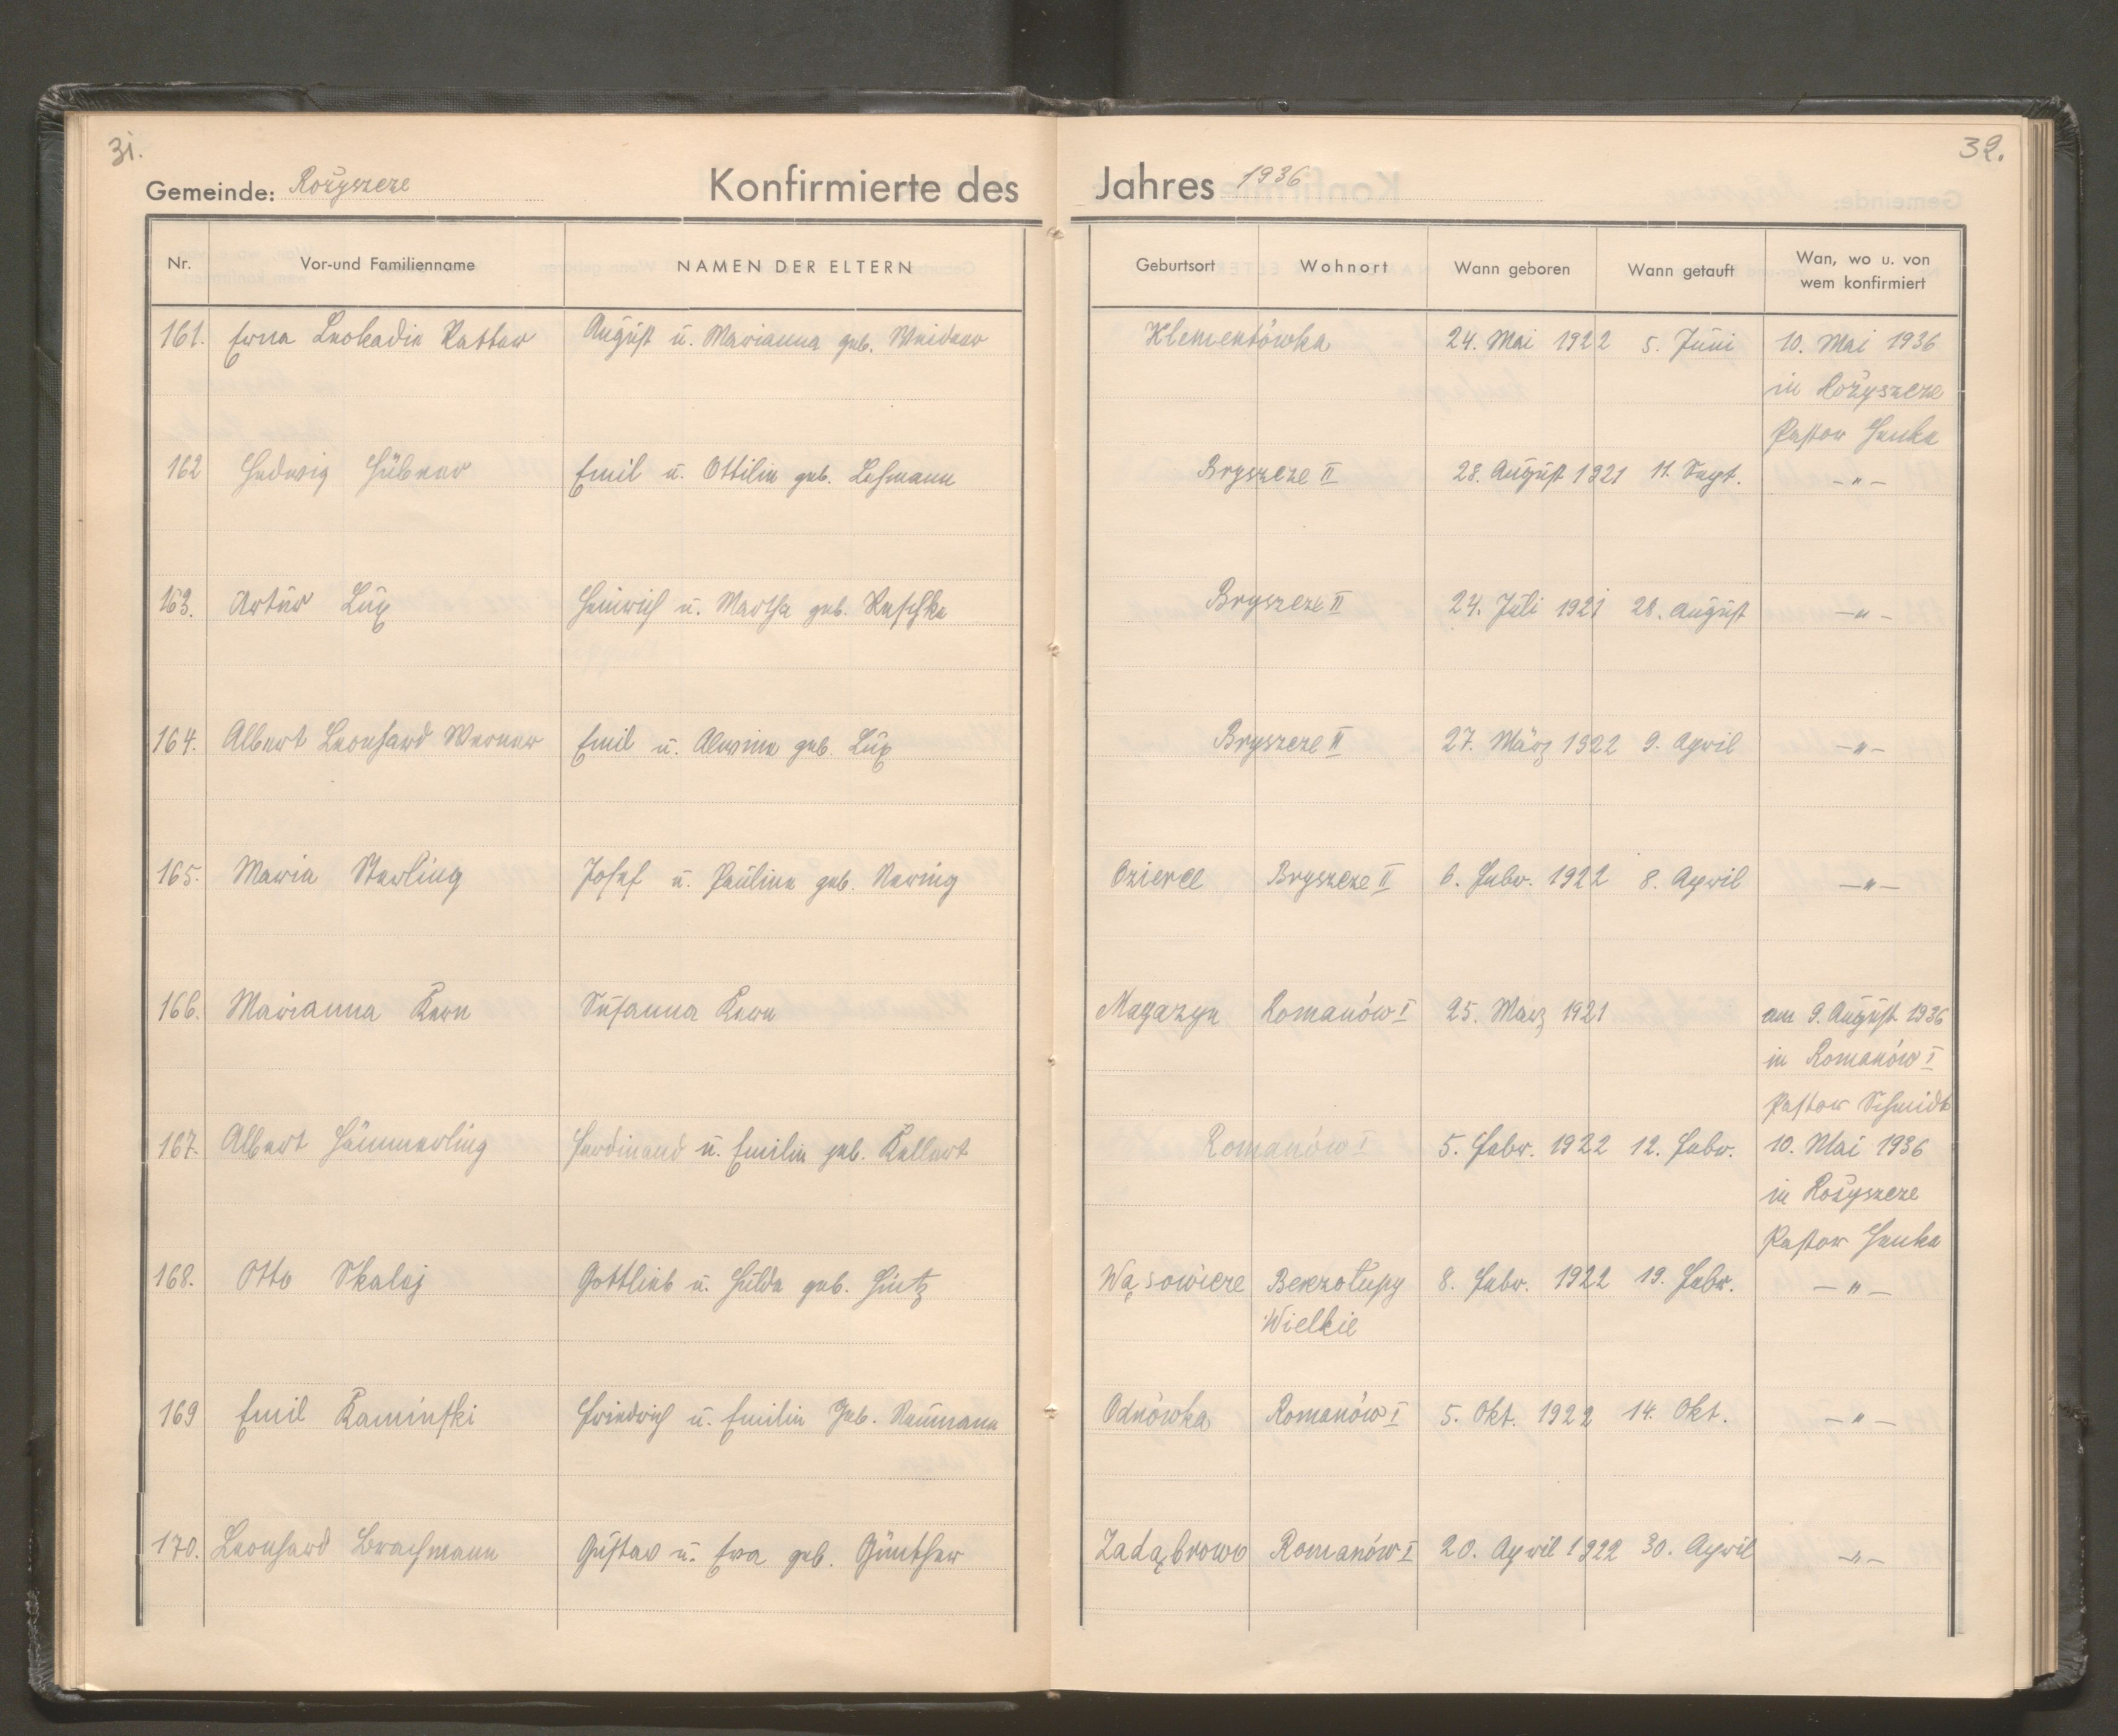 31.
32.
Gemeinde: Rożyszcze
Konfirmierte des Jahres 1936
Nr. Vor-und Familienname NAMEN DER ELTERN Geburtsort Wohnort Wann geboren Wann getauft Wan, wo u. von wem konfirmiert
161. Erna Leokadie Rattar August u. Marianna geb. Weidner Klementówka 24. Mai 1922 5. Juni 10. Mai 1936
in Rożyszcze
Pastor Henke
162 Hedwig Hübner Emil u. Ottilie geb. Lehmann Bryszcze II 28. August 1921 11. Sept. -"-
163. Artur Lux Heinrich u. Martha geb. Raschke Bryszcze II 24. Juli 1921 28. August -"-
164. Albert Leonhard Werner Emil u. Alwine geb. Lux Bryszcze II 27. März 1922 9. April -"-
165. Maria Sterling Josef u. Pauline geb. Nering Ozierce Bryszcze II 6. Febr. 1922 8. April -"-
166. Marianna Kern Susanna Kern Magazyn Romanów I 25. März 1921 am 9. August 1936
in Romanów I
Pastor Schmidt
167. Albert Hämmerling Ferdinand u. Emilie geb. Kellert Romanów I 5. Febr. 1922 12. Febr. 10. Mai 1936
in Rożyszcze
Pastor Henke
168. Otto Skalej Gottlieb u. Hulda geb. Hintz Wąsowicze Bezołupy 8. Febr. 1922 19. Febr. -"-
Wielkie
169 Emil Kaminski Friedrich u. Emilie Geb. Neumann Odnówka Romanów I 5. Okt. 1922 14. Okt. -"-
170. Leonhard Brachmann Gustav u. Eva geb. Günther Zadąbrowo Romanów I 20. April 1922 30. April -"-